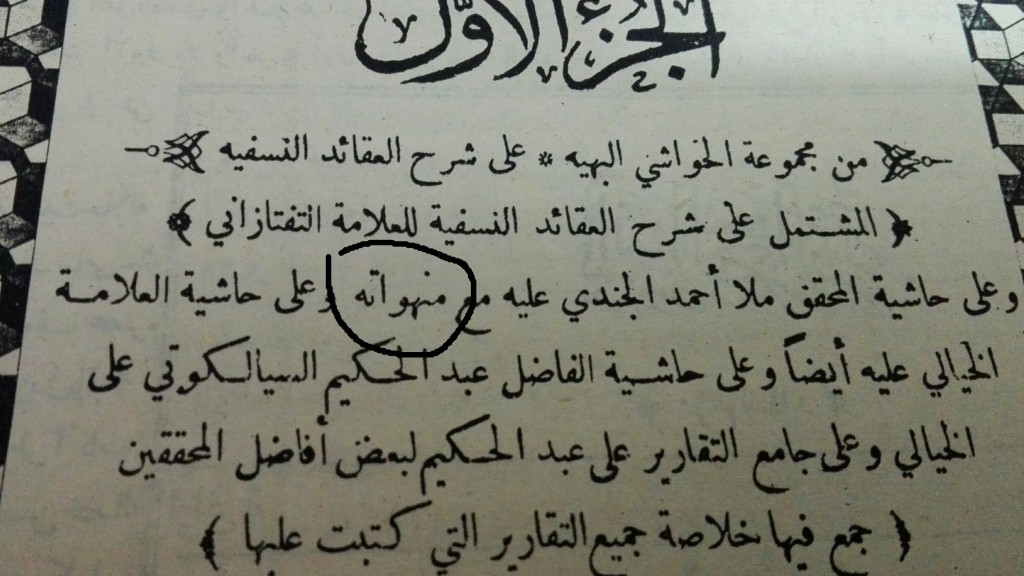 الجزء الأوّل
من مجموعة الحواشي البهيه * على شرح العقائد النسفيه
﴿ المشتمل على شرح العقائد النسفية للعلامة التفتازاني ﴾
وعلى حاشية المحقق ملا أحمد الجندي عليه مع منهواته وعلى حاشية العلامة
الخيالي عليه أيضاً وعلى حاشية الفاضل عبد الحكيم السيالكوتي على
الخيالي وعلى جامع التقارير على عبد الحكيم لبعض أفاضل المحققين
﴿ جمع فيها خلاصة جميع التقارير التي كتبت عليها ﴾